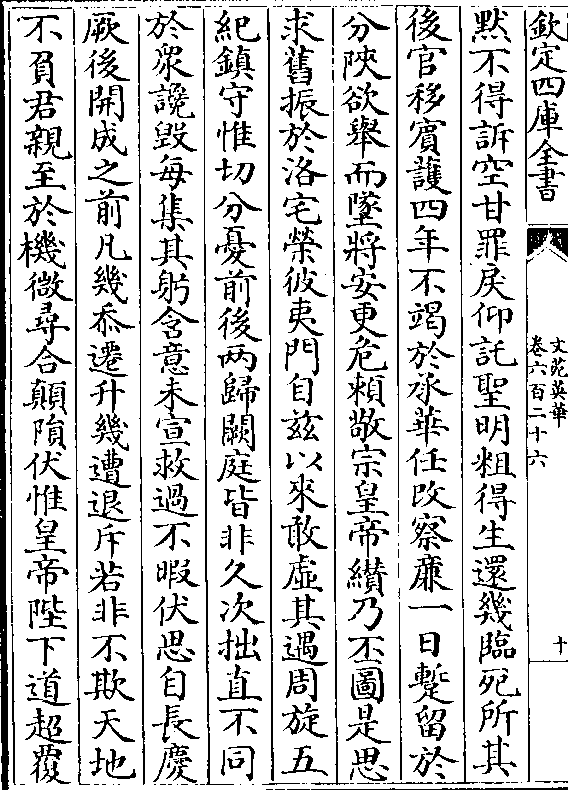 欽定四庫全書
文苑英華
卷六百二十六
十
黙不得訴空甘罪戾仰託聖明粗得生還幾臨死所其
後官移賔護四年不竭於承華任改察亷一日蹔留於
分陜欲舉而墜將安更危頼敬宗皇帝纉乃丕圖是思
求舊振於洛宅榮彼夷門自兹以來敢虚其遇周旋五
紀鎮守惟切分憂前後两歸闕庭皆非久次拙直不同
於衆讒毀每集其躬含意未宣救過不暇伏思自長慶
厥後開成之前凡幾忝遷升幾遭退斥若非不欺天地
不負君親至於機微尋合顛隕伏惟皇帝陛下道超覆